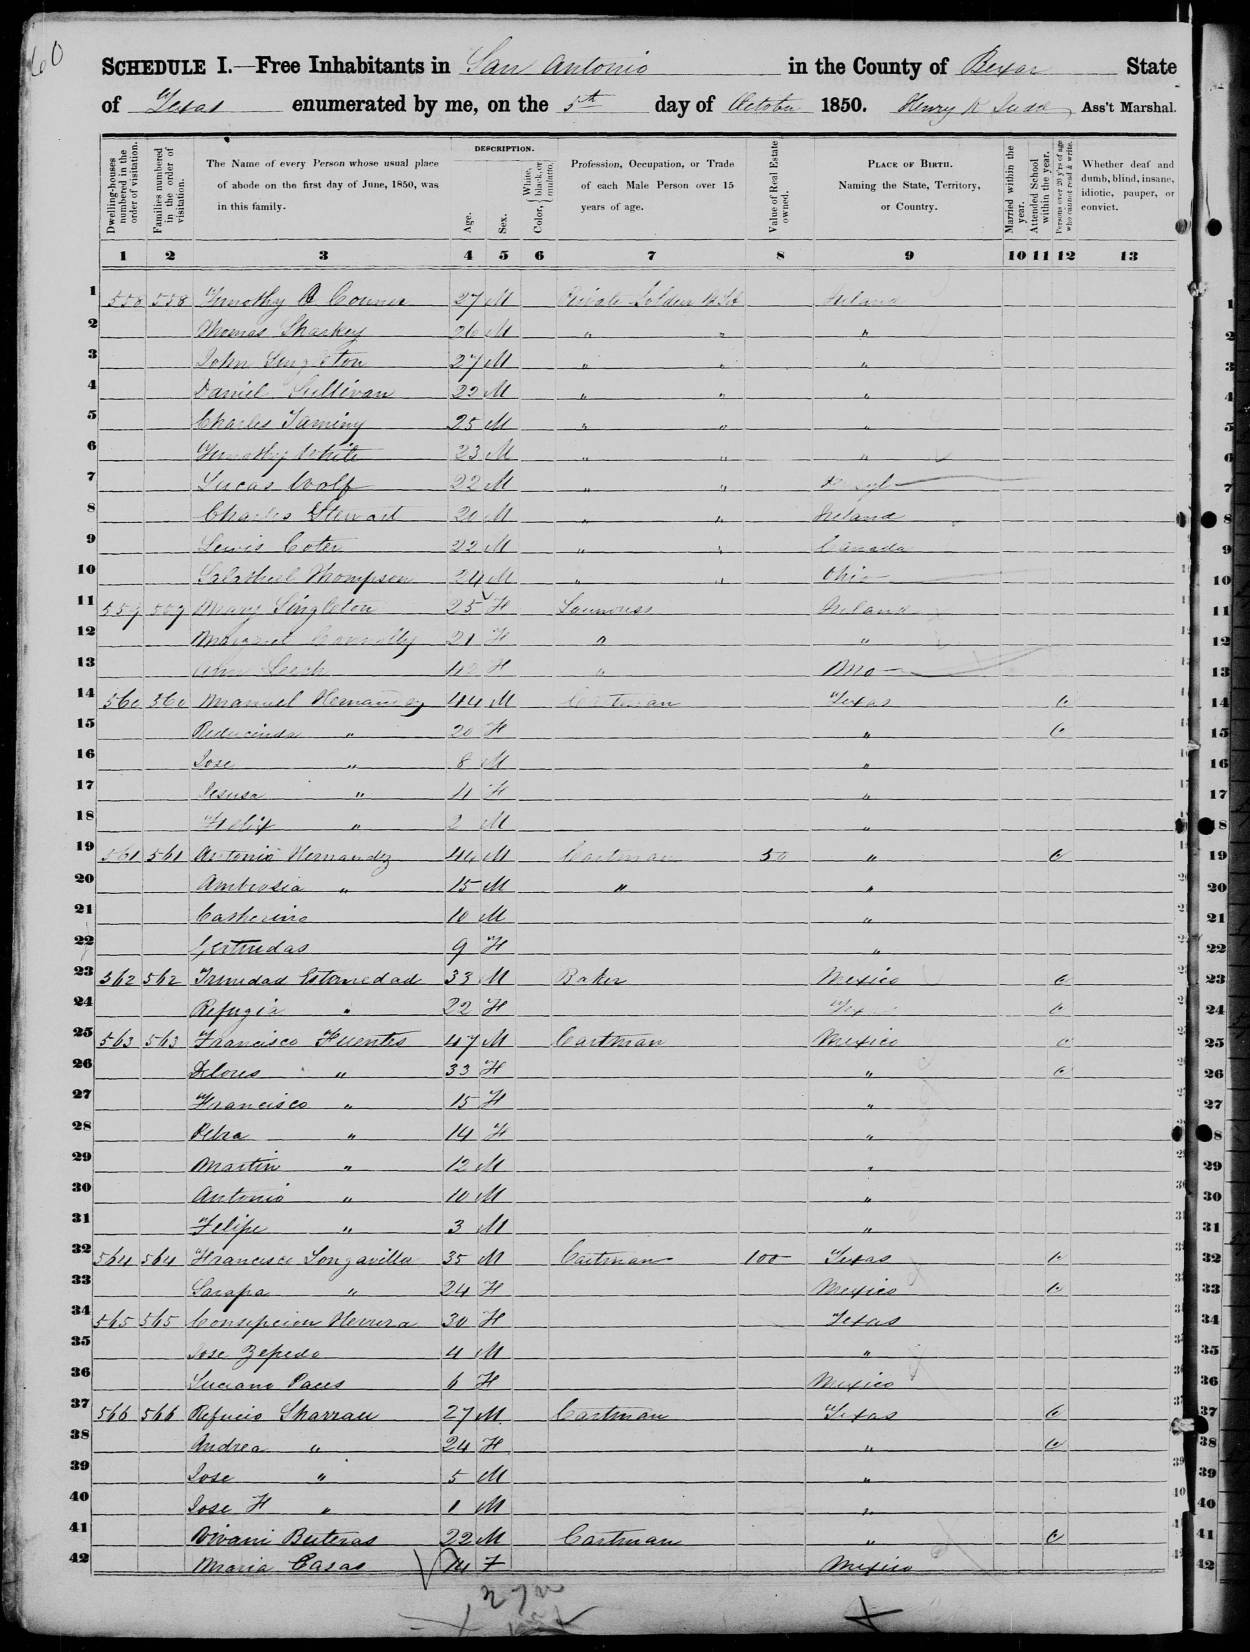 60
SCHEDULE I.—Free Inhabitants in San Antonio in the County of Bexar State
of Texas enumerated by me, on the 5th day of October 1850. Henry K Judd Ass't Marshal.
Dwelling-houses numbered in the order of visitation.
Families numbered in the order of visitation.
The Name of every Person whose usual place of abode on the first day of June, 1850, was in this family.
DESCRIPTION.
Age.
Sex.
Color, { White, black, or mulatto.
Profession, Occupation, or Trade of each Male Person over 15 years of age.
Value of Real Estate owned.
PLACE OF BIRTH. Naming the State, Territory, or Country.
Married within the year.
Attended School within the year.
Persons over 20 y'rs of age who cannot read & write.
Whether deaf and dumb, blind, insane, idiotic, pauper, or convict.
1 2 3 4 5 6 7 8 9 10 11 12 13
1 558 558 Timothy O Conner 27 M Ireland 1
2 Thomas Sharkey 26 M " " " 2
3 John Singleton 27 M " " " 3
4 Daniel Sullivan 22 M " " " 4
5 Charles 25 M " " " 5
6 Timothy White 23 M " " " 6
7 Lucas Wolf 22 M " " 7
8 Charles Stewart 20 M " " Ireland 8
9 Lewis Coter 22 M " " Canada 9
10 Salathiel Thompson 24 M " " Ohio 10
11 559 559 Mary Singleton 25 F Laundress Ireland 11
12 Margaret Connolly 21 F " " 12
13 Ann F " Mo 13
14 560 560 Manuel Hernandez 44 M Cartman Texas 14
15 " 20 F " 15
16 Jose " 8 M " 16
17 Jesusa " 4 F " 17
18 Felix " 2 M " 18
19 561 561 Antonio Hernandez M Cartman 50 " 19
20 Ambrosia " 15 M " " 20
21 Catherino 10 M " 21
22 Gertrudas 9 F " 22
23 562 562 Trinidad 33 M Baker Mexico 23
24 Refugia " 22 F Texas 24
25 563 563 Francisco Fuentes 47 M Cartman Mexico 25
26 Dlores " 33 F " 26
27 Francisco " 15 F " 27
28 Petra " 14 F " 28
29 Martin " 12 M " 29
30 Antonio " 10 M " 30
31 Felipe " 3 M " 31
32 564 564 Francisco Songavilla 35 M Cartman 100 Texas 32
33 Sarapa " 24 F Mexico 33
34 565 565 Consepcion Herrera 30 F Texas 34
35 Jose Zepeda 4 M " 35
36 Luciano 6 F Mexico 36
37 566 566 Refucio 27 M Cartman Texas 37
38 Andrea " 24 F " 38
39 Jose " 5 M " 39
40 Jose F " 1 M " 40
41 22 M Cartman " 41
42 Maria Casas 14 F Mexico 42